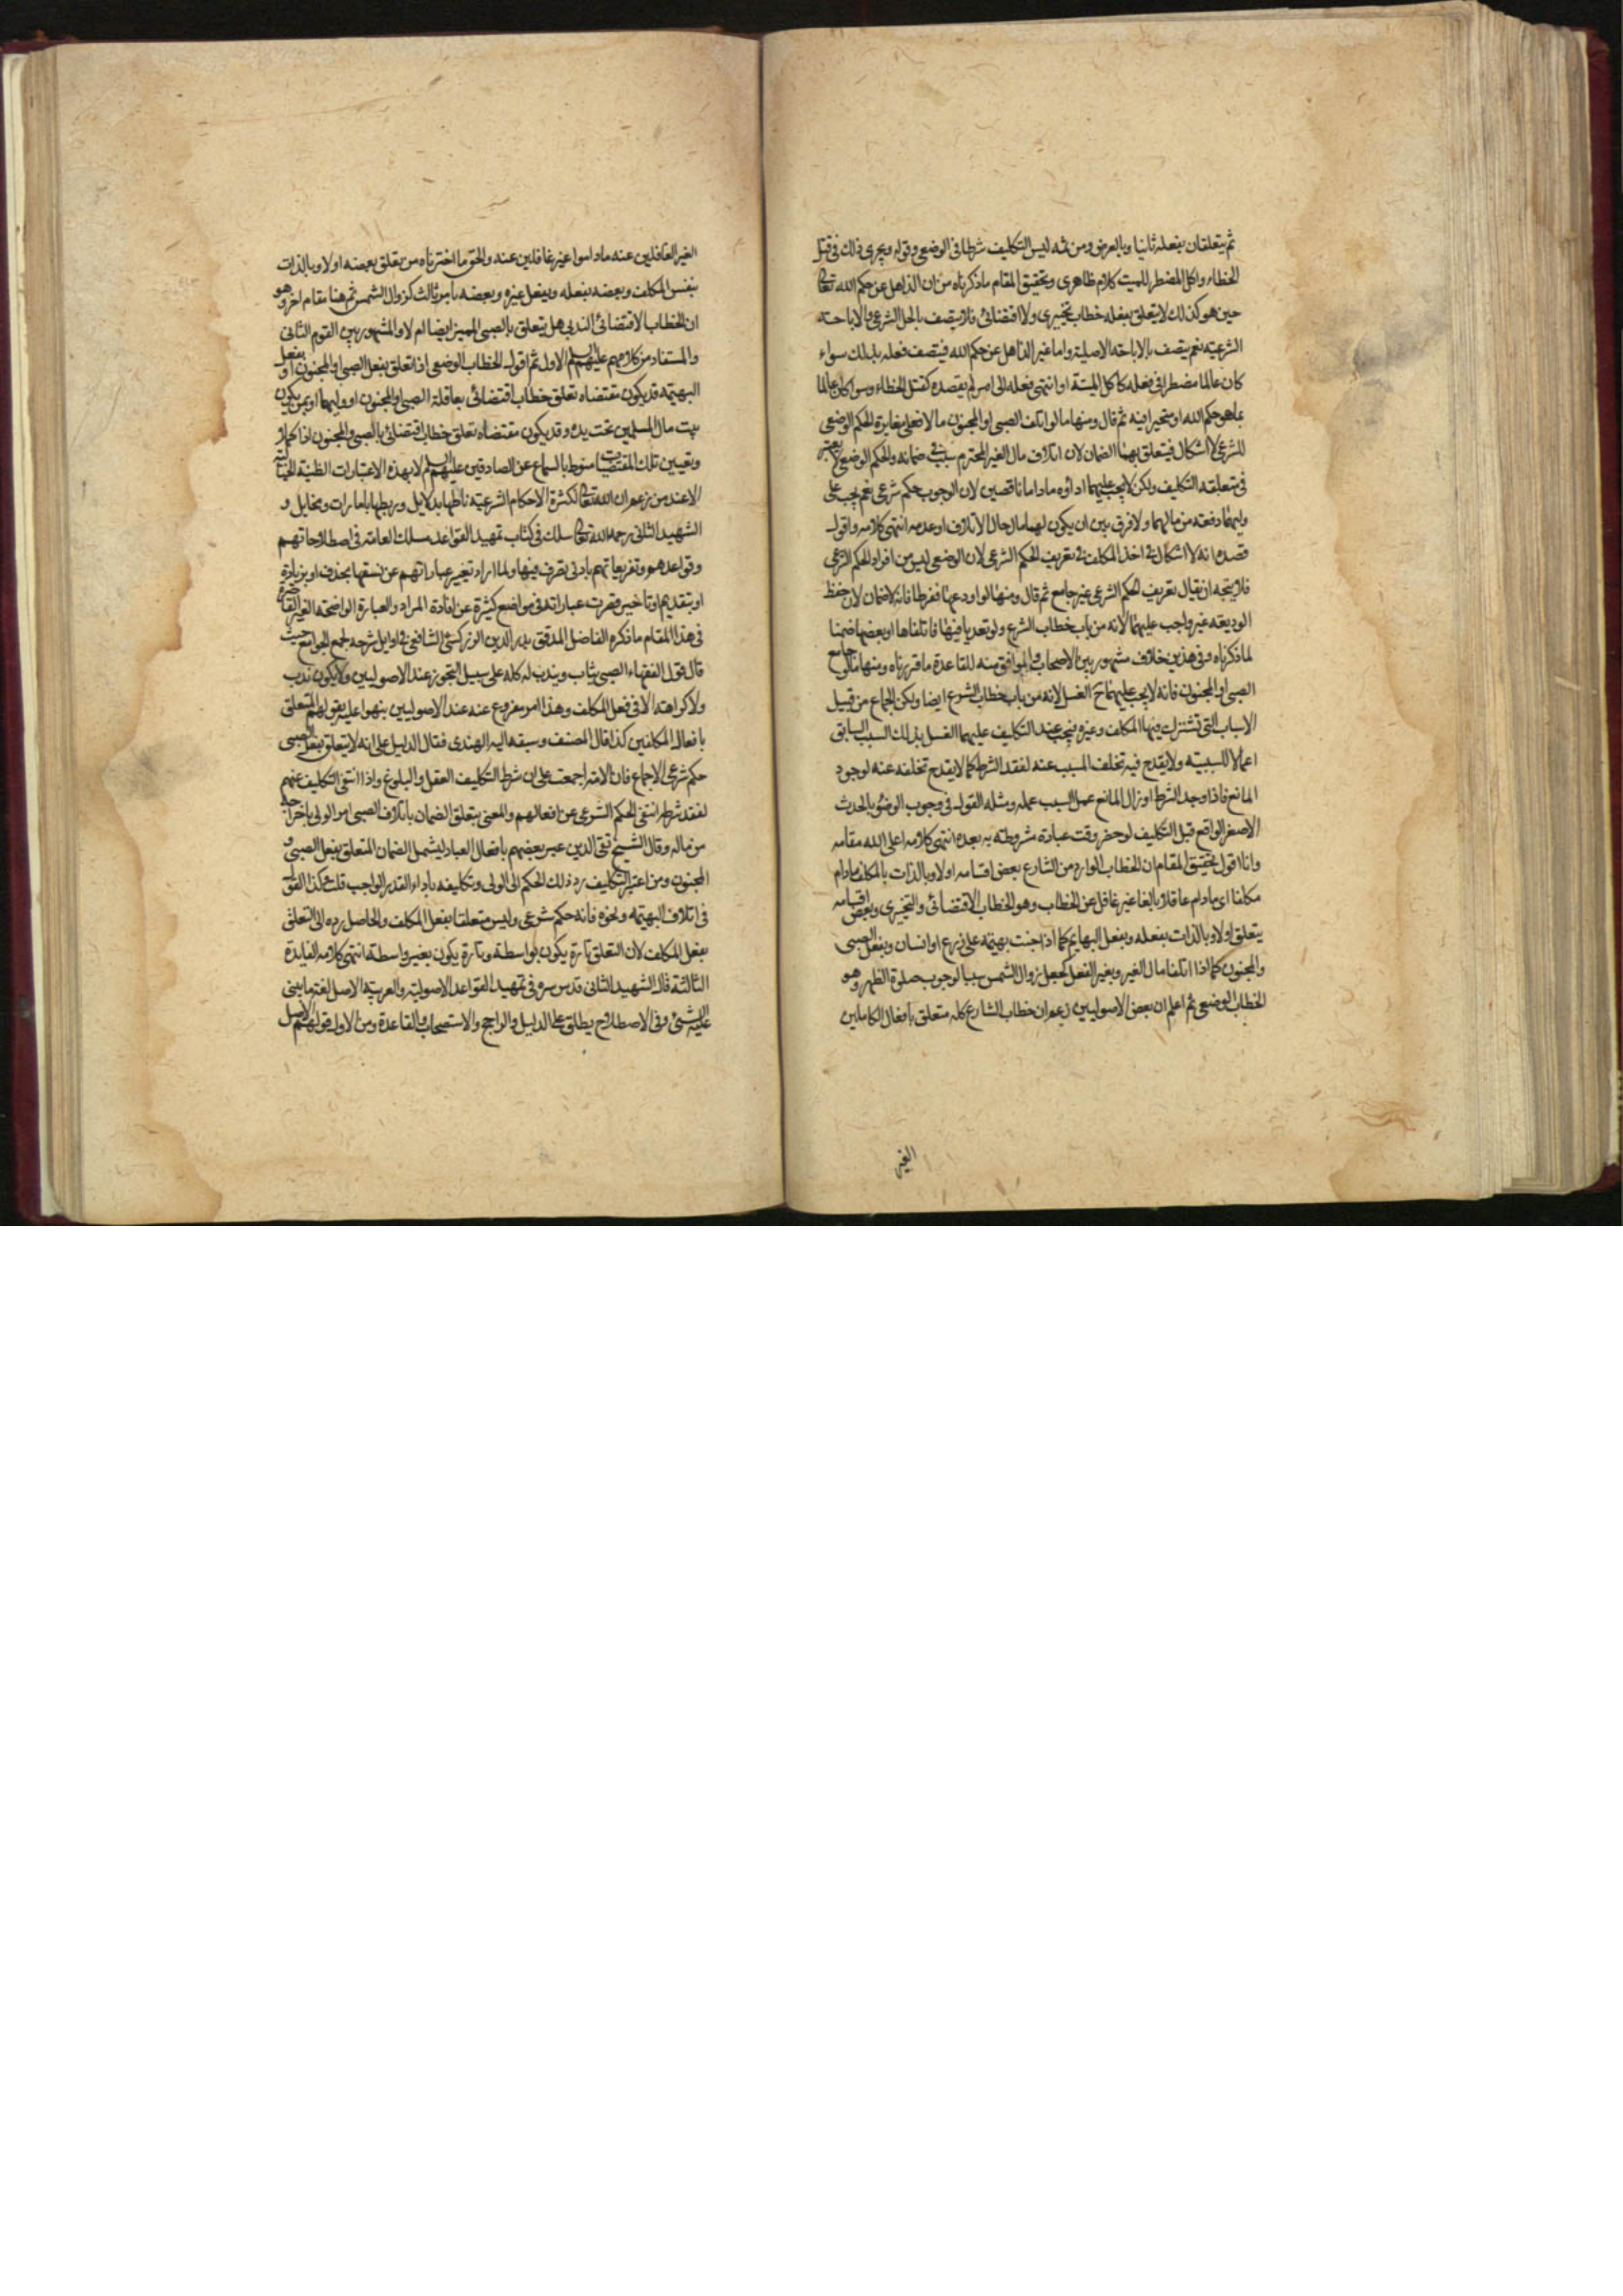 ثم يتعلقان بفعله ثانيا وبالعرض ومن ثمه ليس التكليف شرطا فى الوضعى وقوله ويجرى ذلك فى قتل
الخطاء واكل المضطر للميت كلام ظاهرى وتحقيق المقام ماذكرناه من ان الذاهل عن حكم الله تعالى
حين هو كذلك لا يتعلق بفعله خطاب تخييرى ولا اقتضائى فلا يتصف بالحل الشرعى والاباحة
الشرعية نعم يتصف بالاباحة الاصلية واما غير الذاهل عن حكم الله فيتصف فعله بذلك سواء
كان عالما مضطرا فى فعله كاكل الميتة او انتهى فعله الى امر لم يقصده كقتل الخطاء وسواء كان عالما
بما هو حكم الله او متحيرا فيه ثم قال ومنها ما لو اتلف الصبى او المجنون مالا فعلى مغايرة الحكم الوضعى
للشرعى لا اشكال فيتعلق بهما الضمان لان اتلاف مال الغير المحترم سبب فى ضمانه والحكم الوضعى لا يعتبر
فى متعلقه التكليف ولكن لا يجب عليهما اداؤه ماداما ناقصين لان الوجوب حكم شرعى نعم يجب على
وليهما دفعه من مالهما ولا فرق بين ان يكون لهما مال حال الاتلاف او عدمه انتهى كلامه واقول
قصده انه لا اشكال فى اخذ المكلف فى تعريف الحكم الشرعى لان الوضعى ليس من افراد الحكم الشرعى
فلا يتجه ان يقال تعريف الحكم الشرعى غير جامع ثم قال ومنها لو اودعها ففرطا فانه لا ضمان لان حفظ
الوديعة غير واجب عليهما لانه من باب خطاب الشرع ولو تعديا فيها فاتلفاها او بعضها ضمنا
لما ذكرناه وفى هذين خلاف مشهور بين الاصحاب والموافق منه للقاعدة ما قررناه ومنها ما لو جامع
الصبى او المجنون فانه لا يجب عليهما ح الغسل لانه من باب خطاب الشرع ايضا ولكن الجماع من قبيل
الاسباب التى تشترك فيها المكلف وغيره فيجب عند التكليف عليهما الغسل بذلك السبب السابق
اعمالا للسببية ولا يقدح فيه تخلف المسبب عنه لفقد الشرط كما لا يقدح تخلفه عنه لوجود
المانع فاذا وجد الشرط او زال المانع عمل السبب عمله ومثله القول فى وجوب الوضوء بالحدث
الاصغر الواقع قبل التكليف لو حضر وقت عبادة مشروطة به بعده انتهى كلامه اعلى الله مقامه
وانا اقول تحقيق المقام ان الخطاب الوارد من الشارع بعض اقسامه اولا وبالذات بالمكلف مادام
مكلفا اى مادام عاقلا بالغا غير غافل عن الخطاب وهو الخطاب الاقتضائى والتخييرى وبعض اقسامه
يتعلق اولا وبالذات بفعله وبفعل البهايم كما اذا جنت بهيمة على زرع او انسان وبفعل الصبى
والمجنون كما اذا اتلفا مال الغير وبغير الفعل كجعل زوال الشمس سببا لوجوب صلوة الظهر وهو
الخطاب الوضعى ثم اعلم ان بعض الاصوليين زعم ان خطاب الشارع كله متعلق بافعال الكاملين
الغير
الغير الغافلين عنه ماداموا غير غافلين عنه والحق ما اخترناه من تعلق بعضه اولا وبالذات
بنفس المكلف وبعضه بفعله وبفعل غيره وبعضه بامر ثالث كزوال الشمس ثم هنا مقام اخر وهو
ان الخطاب الاقتضائى الندبى هل يتعلق بالصبى المميز ايضا ام لا والمشهور بين القوم الثانى
والمستفاد من كلامهم عليهم السلم الاول ثم اقول الخطاب الوضعى اذا تعلق بفعل الصبى او المجنون او بفعل
البهيمة قد يكون مقتضاه تعلق خطاب اقتضائى بعاقلة الصبى والمجنون او وليهما او بمن يكون
بيت مال المسلمين تحت يده وقد يكون مقتضاه تعلق خطاب اقتضائى بالصبى والمجنون اذا كملا
وتعيين تلك المقتضيات منوط بالسماع عن الصادقين عليهم السلم لا بهذه الاعتبارات الظنية الخيالية
الا عند من زعم ان الله تعالى لكثرة الاحكام الشرعية ناطها بدلايل وربطها بامارات ومخايل و
الشهيد الثانى رحمه الله تعالى سلك فى كتاب تمهيد القواعد مسلك العامة فى اصطلاحاتهم
وقواعدهم وتفريعاتهم بادنى تصرف فيها ولما اراد تغيير عباراتهم عن نسقها بحذف او بزيادة
او بتقديم او تاخير قصرت عباراته فى مواضع كثيرة عن افادة المراد والعبارة الواضحة الغير القاصرة
فى هذا المقام ما ذكره الفاضل المدقق بدر الدين الزركشى الشافعى فى اوايل شرحه لجمع الجوامع حيث
قال قول الفقهاء الصبى يثاب ويندب له كله على سبيل التجوز عند الاصوليين ولا يكون ندب
ولا كراهة الا فى فعل المكلف وهذا امر مفروغ عنه عند الاصوليين نبهوا عليه بقولهم المتعلق
بافعال المكلفين كذا قال المصنف وسبقه اليه الهندى فقال الدليل على انه لا يتعلق بفعل الصبى
حكم شرعى الاجماع فان الامة اجمعت على ان شرط التكليف العقل والبلوغ واذا انتفى التكليف عنهم
لفقد شرطه انتفى الحكم الشرعى عن افعالهم والمعنى بتعلق الضمان باتلاف الصبى امر الولى باخراجه
من ماله وقال الشيخ تقى الدين عبر بعضهم بافعال العباد ليشمل الضمان المتعلق بفعل الصبى و
المجنون ومن اعتبر التكليف رد ذلك الحكم الى الولى وتكليفه باداء القدر الواجب قلت وكذا القول
فى اتلاف البهيمة ونحوه فانه حكم شرعى وليس متعلقا بفعل المكلف والحاصل رده الى التعلق
بفعل المكلف لان التعلق تارة يكون بواسطة وتارة يكون بغير واسطة انتهى كلامه الفايدة
الثالثة قال الشهيد الثانى قدس سره فى تمهيد القواعد الاصولية والعربية الاصل لغة ما يبنى
عليه الشئ وفى الاصطلاح يطلق على الدليل والراجح والاستصحاب والقاعدة ومن الاول قولهم الاصل